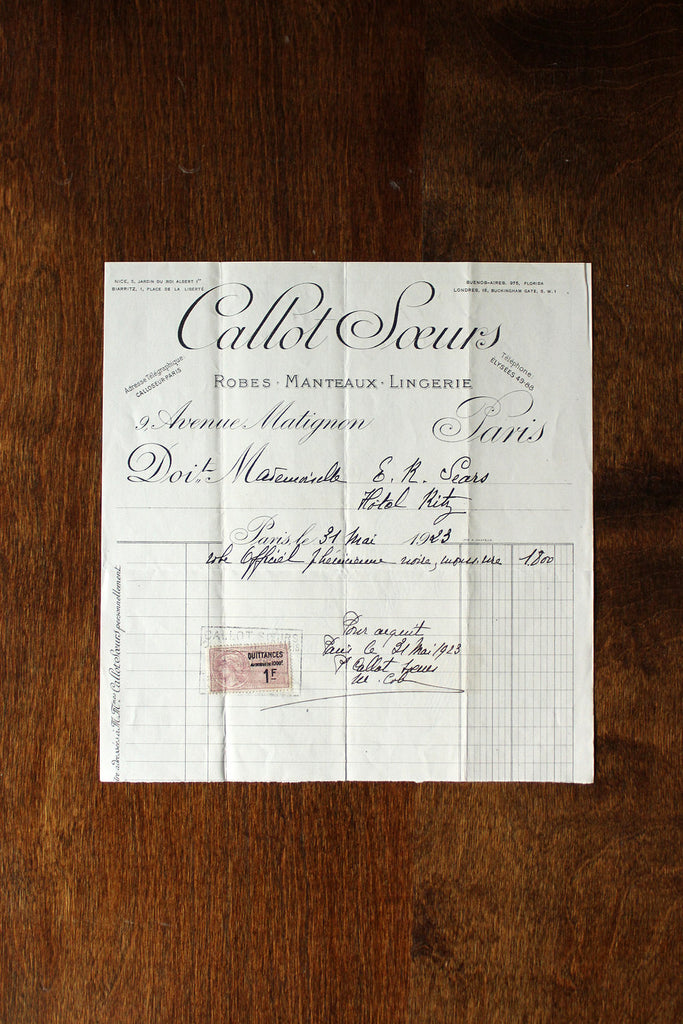 NICE, 5, JARDIN DU ROI ALBERT 1er
BIARRITZ, 1, PLACE DE LA LIBERTÉ
BUENOS-AIRES, 975, FLORIDA
LONDRES, 18, BUCKINGHAM GATE, S.W.1
Callot Sœurs
Adresse Télégraphique:
CALLOSEUR-PARIS
Téléphone:
ELYSÉES 49-88
ROBES · MANTEAUX · LINGERIE
9 Avenue Matignon Paris
Doit Mademoiselle E. R. Sears
Hôtel Ritz
Paris, le 31 Mai 1923
robe Officiel phénicienne noire, 1800
adressés à M.Mmes Callot Sœurs personnellement
CALLOT SŒURS
QUITTANCES
1F
Pour argent
Paris le 31 Mai 1923
Callot Sœurs